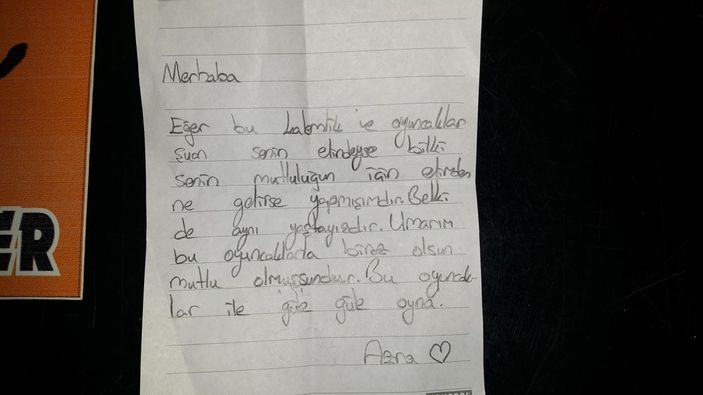 Merhaba
Eğer bu ve oyuncaklar
şuan senin elindeyse bilki
senin mutluluğun için elimden
ne gelirse yapmışımdır. Belki
de aynı yaştayızdır. Umarım
bu oyuncaklarla biraz olsun
mutlu olmuşsundur. Bu oyuncak-
lar ile güle güle oyna.
Azra ♡
ER